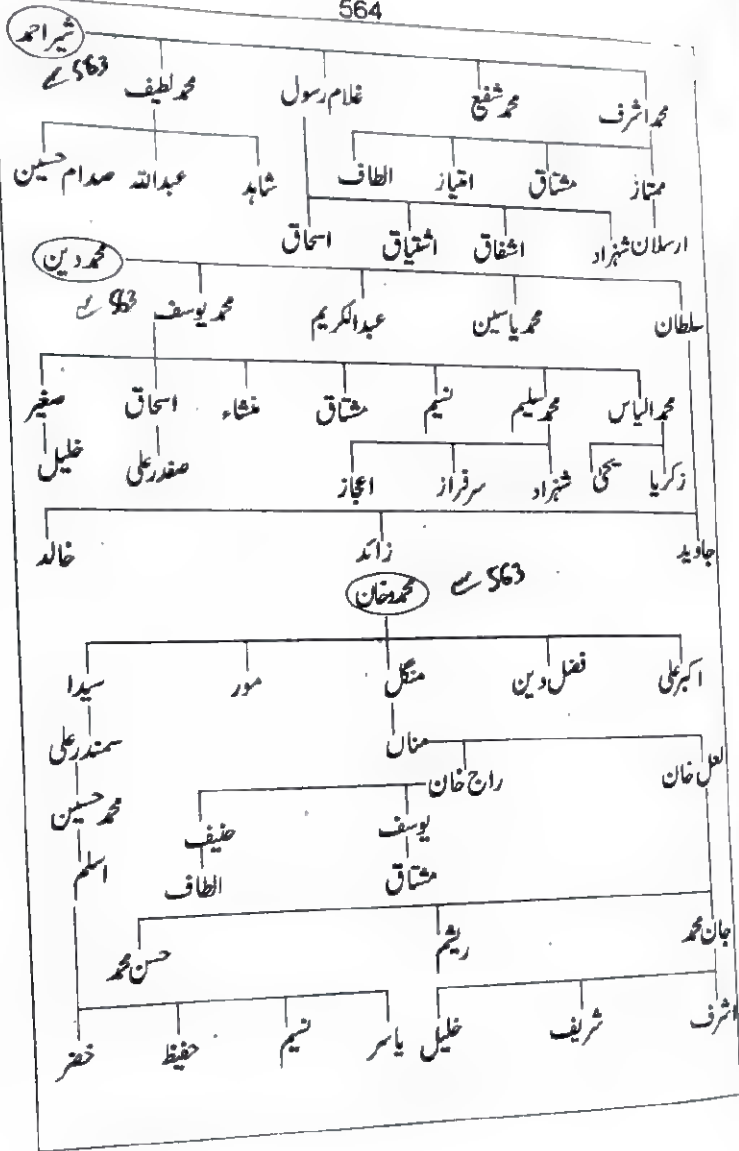 564
شیر احمد
563 سے
محمد اشرف محمد شفیع غلام رسول محمد لطیف
ممتاز مشتاق امتیاز الطاف شاہد عبداللہ صدام حسین
ارسلان شہزاد اشفاق اشتیاق اسحاق
محمد دین
563 سے
سلطان محمد یاسین عبدالکریم محمد یوسف
محمد الیاس محمد سلیم نسیم مشتاق منشاء اسحاق صغیر
زکریا یحییٰ شہزاد سرفراز اعجاز صفدر علی خلیل
جاوید زائد خالد
محمد خان 563 سے
اکبر علی فضل دین منگل مور سیدا
مناں سمندر علی
لعل خان راج خان
یوسف حنیف محمد حسین
مشتاق الطاف اسلم
جان محمد ریشم حسن محمد
اشرف شریف خلیل یاسر نسیم حفیظ خضر